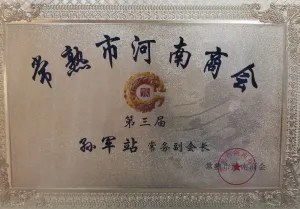 常熟市河南商会
第三届
孙军站 常务副会长
常熟市河南商会